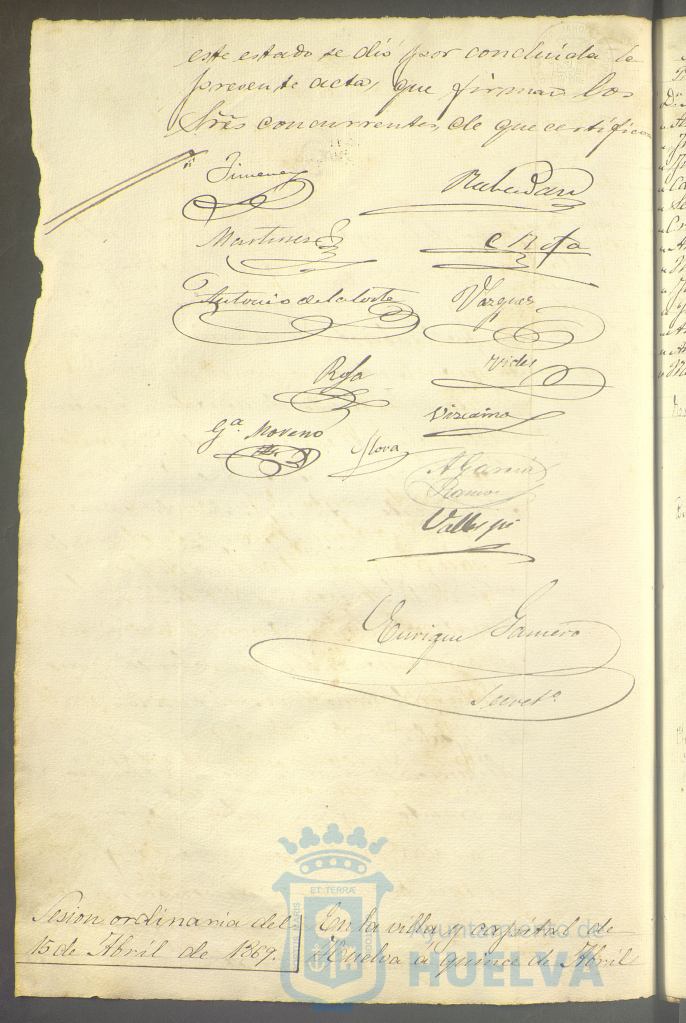 este estado se dió por concluida la
presente acta, que firman los
Sres concurrentes, de que certifico
Jimenez
Martinez
C Rofa
Antonio de la Corte
Vazquez
Rofa
Vides
Gª Moreno
Mora
Vizcaino
A Garcia
Ramos
Enrique Gamero
Secretº
Sesion ordinaria del
15 de Abril de 1869.
En la villa y capital de
Huelva a quince de Abril
ET TERRÆ
Ayuntamiento de
HUELVA